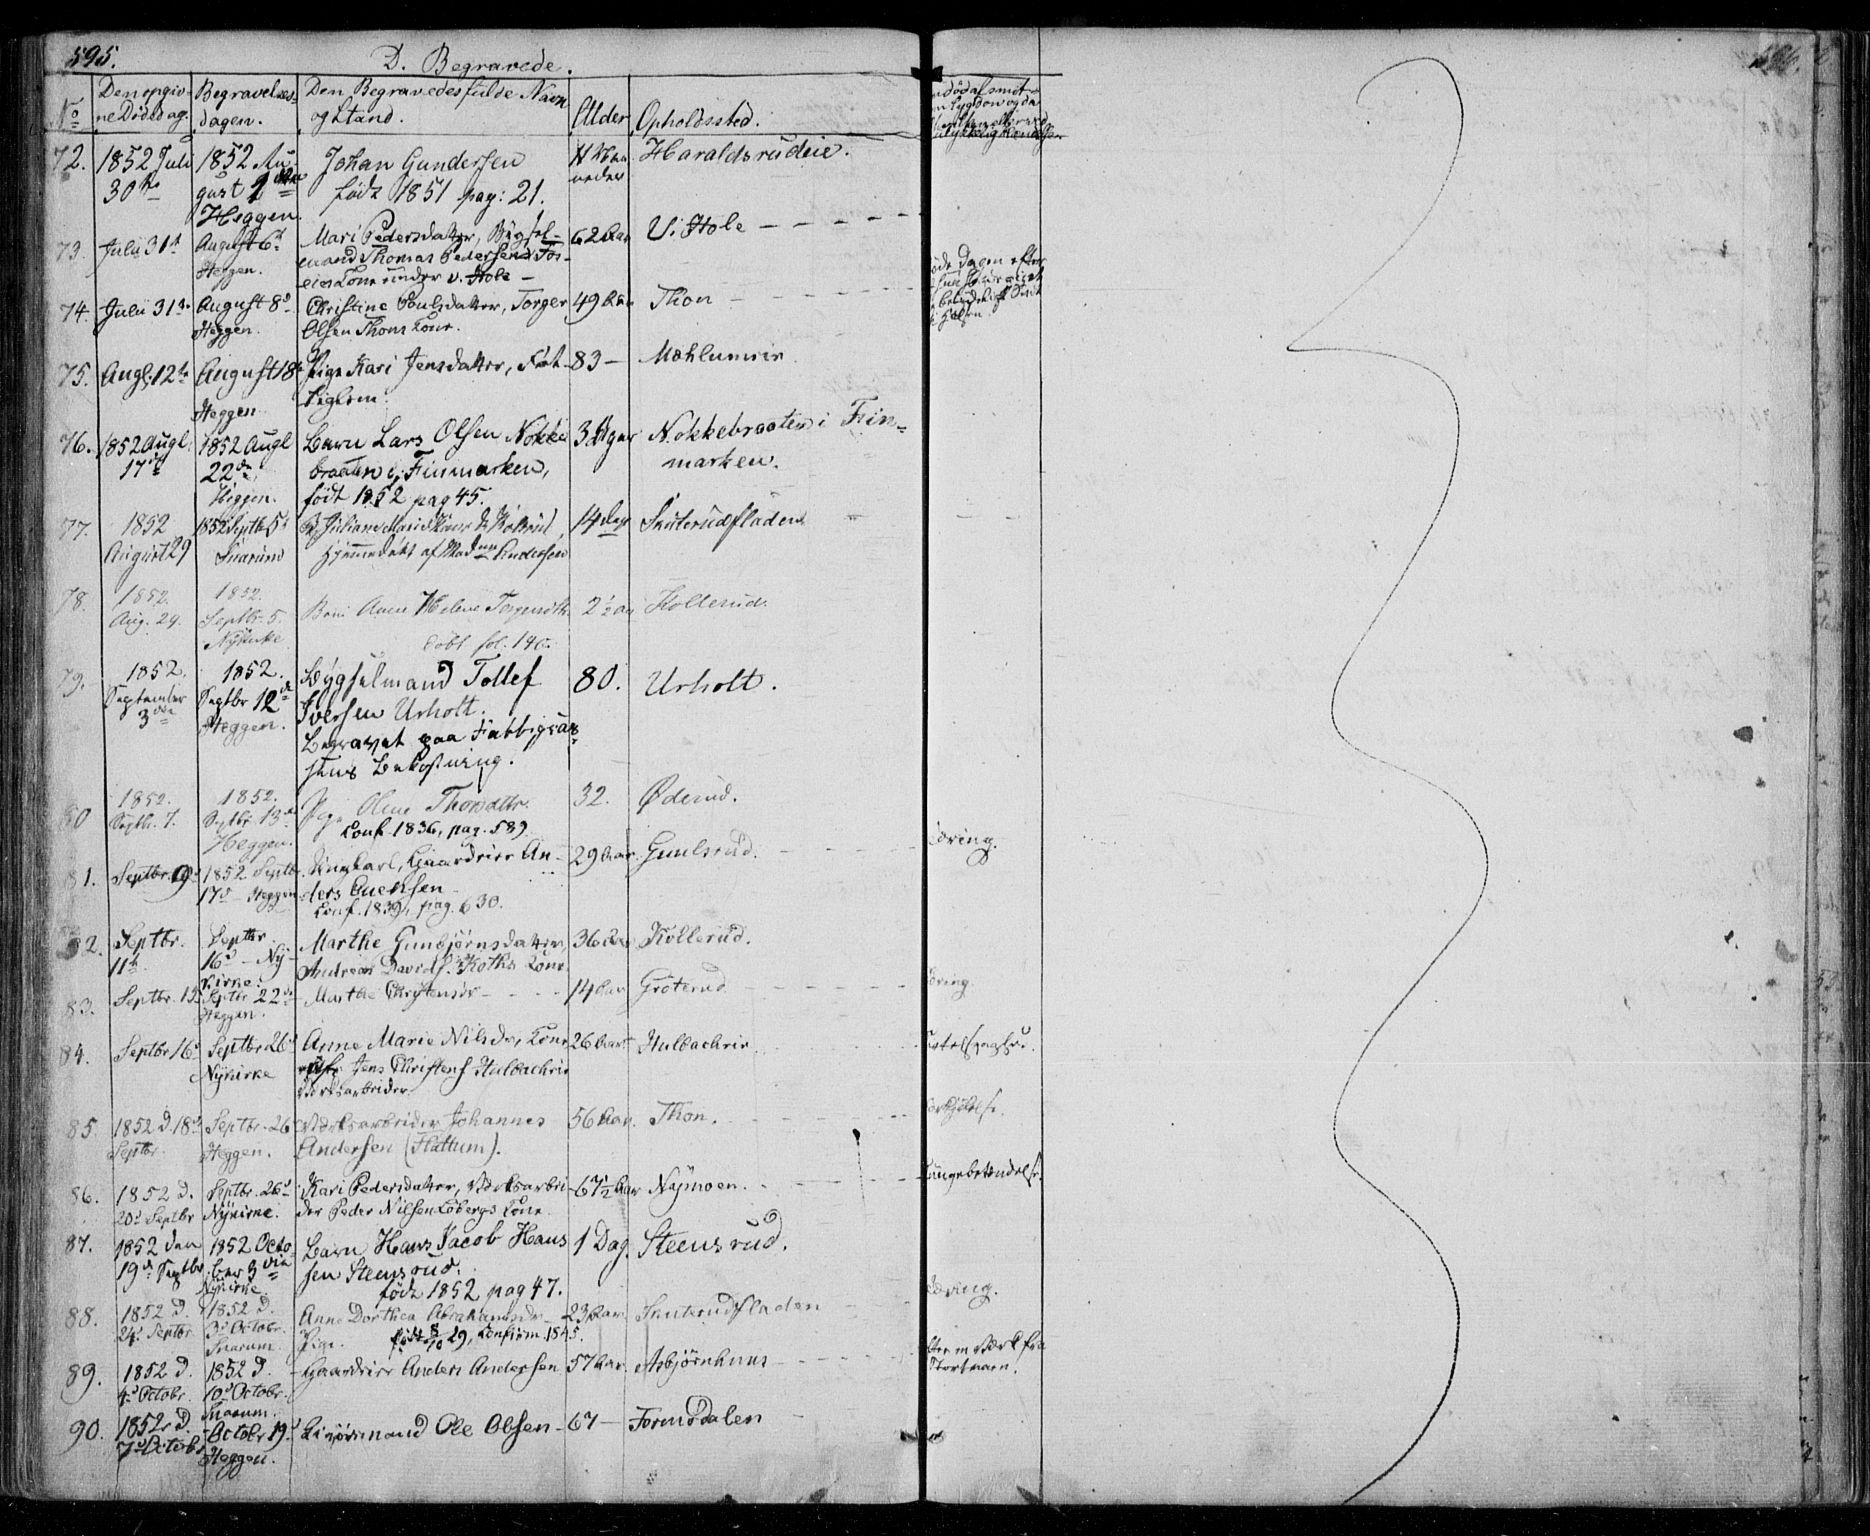 595.
D. Begravede.
No
Den opgiv-
ne Dödsdag.
Begravelses-
dagen.
Den Begravedes fulde Navn
og Stand.
Alder
Opholdssted.
72. 1852 Juli 30te
1852 Au-
gust
Heggen.
Johan Gundersen
født 1851 pag: 21.
Haraldsrudeie.
73. Julii 31te
August 6te
Heggen.
Mari Pedersdatter, Bygsel-
mand Thomas Pedersens
Kone under v. Hole
62 Aar
V. Hole
74. Julii 31te
August 8de
Heggen.
Christine Poulsdatter, Torger
Olsen Thons Kone.
49 Aar
Thon
øde dagen efter
75. Augl. 12te
August 18de
Heggen
Pige Kari Jensdatter, Fat-
tiglem.
83
Mæhlumeie
76. 1852 Augl.
17de
1852 Augl
22de
Heggen.
Barn Lars Olsen Nokke-
braaten i Finmarken,
født 1852 pag 45.
3 Uger
Nokkebraaten i Fin-
marken.
77. 1852
August 29
1852 Septbr 5te
Snarum
Hjemmedøbt af Madme Andersen
14 Dage
Skuterudfladen
78. 1852.
Aug. 29.
1852.
Septbr. 5.
Nykirke
Barn Anne Helene
døbt fol. 140.
2½ Aar
Kollerud.
79. 1852.
September
3die
1852.
Septbr 12te
Heggen.
Bygselmand Tollef
Iversen Urholt.
Begravet paa Fattigcas-
sens Bekostning.
80.
Urholt.
80 1852.
Septbr. 7.
1852.
Septbr. 13de
Heggen.
Pige Oline Thorsdtr.
Conf. 1836, pag. 589.
32.
Øderud.
81. Septbr. 9de
1852 Septbr.
17de Heggen
Ungkarl, Gaardeier An-
ders
Conf. 1839, pag. 630.
29 Aar.
Gunlsrud.
Tæring.
82. Septbr.
11te
Septbr
16de Ny-
kirke.
Marthe Gunbjørnsdatter,
Andreas Davids. Koths Kone.
36 Aar
Kollerud.
83. Septbr. 15de
Septbr 22de
Heggen.
Marthe Christensdr
14 Aar
Grøterud
Tæring.
84. Septbr 16de
Septbr 26de
Nykirke
Anne Marie Nilsdr, Kone
Jens Christens. Hulbackeie
Værksarbeider
26 Aar
Hulbackeie
85. 1852 D. 18de
Septbr.
Septbr. 26de
Heggen.
Værksarbeider Johannes
Andersen (Flattum).
56 Aar.
Thon.
86. 1852 D.
20de Septbr
Septbr. 26de
Nykirke.
Kari Pedersdatter, Værksarbei-
der Peder Nilsen Løbergs Kone
67½ Aar
Nymoen.
Lungebetændelse.
87. 1852 den
19de Septbr
1852 Octo-
ber 3die
Nykirke.
Barn Hans Jacob Han-
sen Steensrud.
født 1852 pag 47.
1 Dag.
Steensrud.
88. 1852 D.
24de Septbr
1852 D.
3de Octobr.
Snarum.
Anne Dorthea Abrahamsdr
Pige. født 8/10 29, Confirm. 1845.
23 Aar.
Skuterudfladen
Tæring.
89. 1852 D.
4de Octobr
1852 D.
10de Octobr.
Snarum.
Gaardeier Anders Andersen
57 Aar.
Asbjørnhuus
90. 1852 D.
7de Octobr
Octobr 19de
Heggen.
Ole Olsen
67
Formodalen